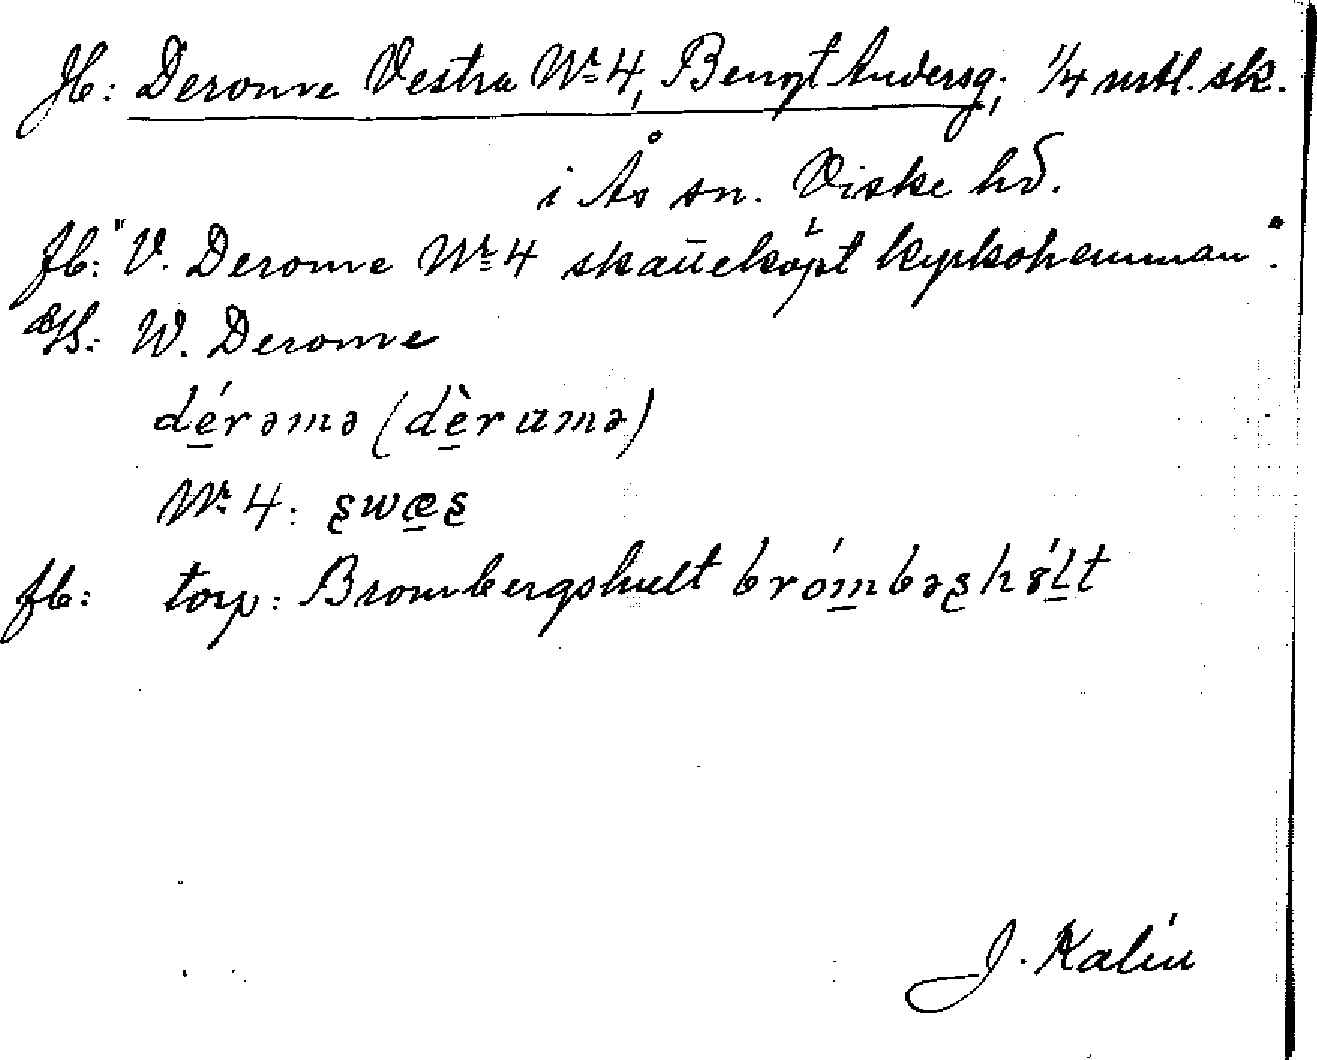 Jb: Derome Vestra Nr 4, Bengt Andersg; 1/4 mtl. sk.
i Ås sn. Viske hd.
Jb: "V. Derome Nr 4 skatteköpt kyrkohemman".
W. Derome
dérəmə (dèrαmə)
Nr 4:
Jb: torp: Brombergshult
J. Kalén